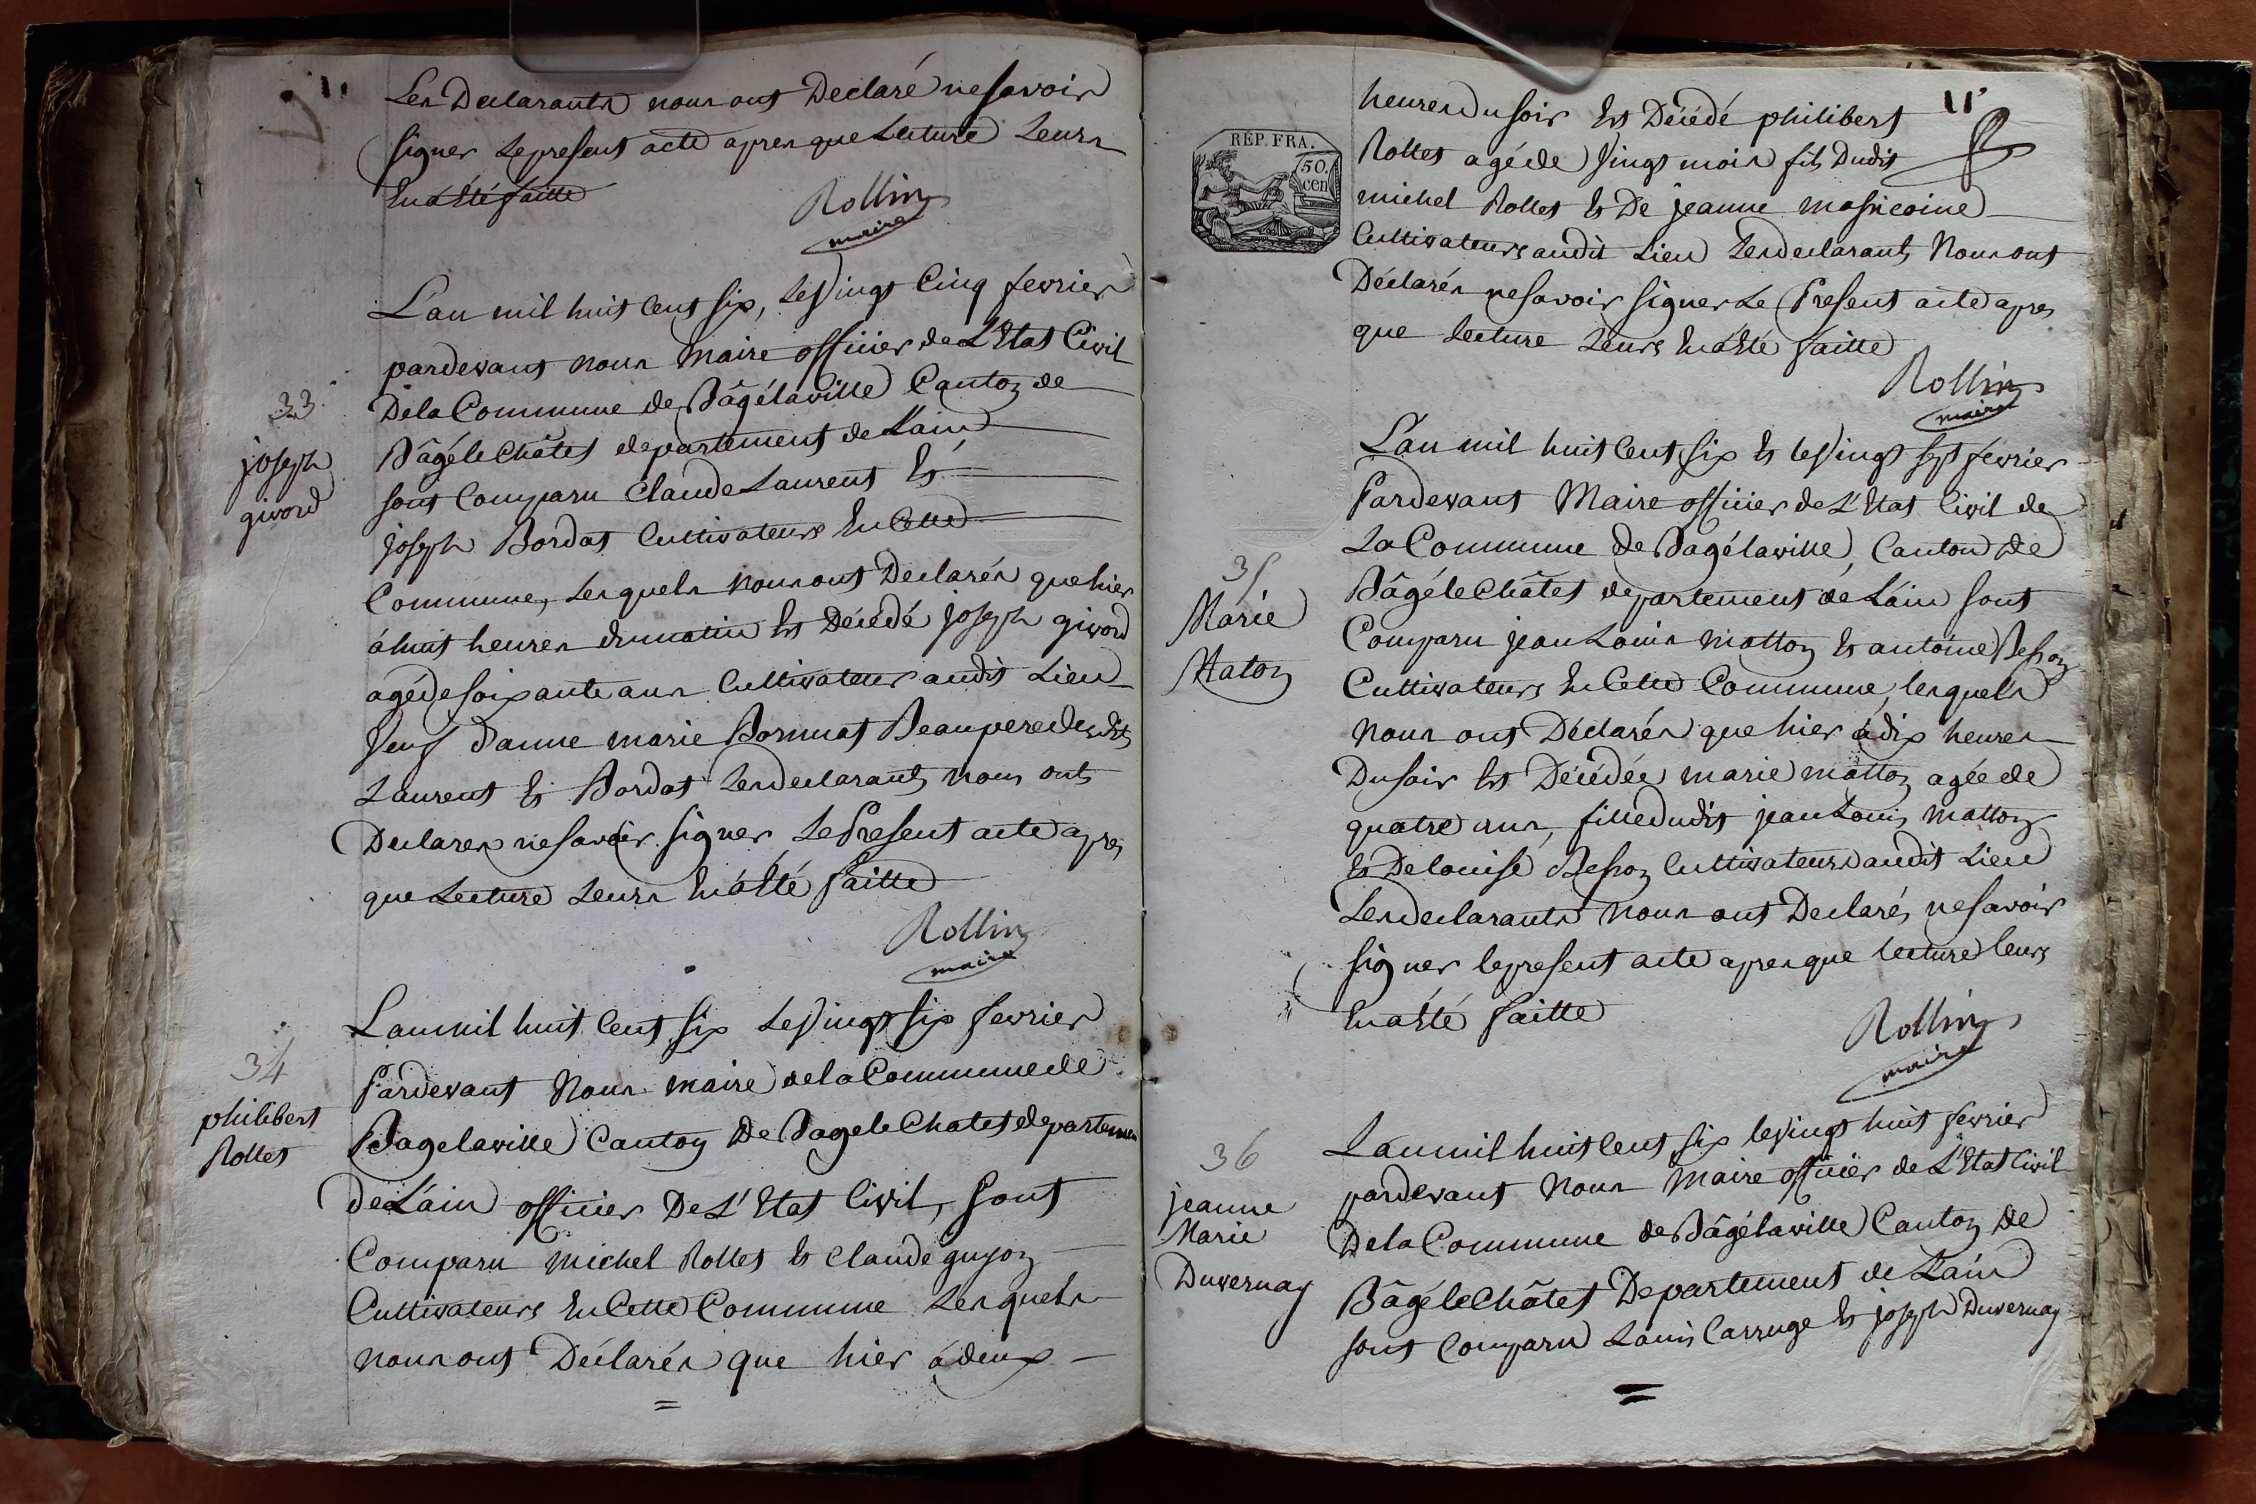 Les Declarants nous ont Declaré ne savoir
signer Le present acte apres que Lecture Leurs
En a Eté faitte
Rollin
maire
L'an mil huit cent six, le vingt Cinq fevrier
pardevant nous Maire officier de L'Etat Civil
De la Commune de Bâgélaville Canton de
Bâgé le Châtel departement de L'ain
sont Comparu Claude Laurent Et
joseph Bordat Cultivateurs En Cette
Commune, Lesquels nous ont Declarés que hier
á huit heures du matin Est Décédé joseph givord
agé de soixante ans Cultivateur audit Lieu
Veuf d'anne marie Bornuat Beaupere desdits
Laurent Et Bordat Les declarants nous onts
Declares ne savoir signer Le Present acte apres
que Lecture Leurs En a Eté faitte
Rollin
maire
33
joseph
givord
L'an mil huit Cent six Le vingt six fevrier
Pardevant Nous maire de la Commune de
Bagelaville Canton De Bage le Chatel departement
de L'ain officier De L'Etat Civil, sont
Comparu michel Rollet Et Claude guyon
Cultivateurs En Cette Commune Lesquels
nous ont Déclarés que hier á deux
34
philibert
Rollet
11
REP. FRA.
50
cen
heures du soir Est Décédé philibert
Rollet agé de vingt mois fils Dudit
michel Rollet Et De jeanne
Cultivateurs audit Lieu Les declarants Nous ont
Déclarés ne savoir signer Le Present acte apres
que Lecture Leurs En a Eté faitte
Rollin
maire
L'an mil huit Cent six Et le vingt sept fevrier
Pardevant Maire officier de L'Etat Civil de
La Commune de Bagélaville, Canton de
Bâgé le Châtel departement de L'ain sont
Comparu jean Louis Matton Et antoine Besson
Cultivateurs En Cette Commune, lesquels
Nous ont Déclarés que hier á dix heures
Du soir Est Décédée marie matton agée de
quatre ans, fille dudit jean Louis Matton
Et De louise Besson Cultivateurs audit Lieu
Les declarants Nous ont Declarés ne savoir
signer le present acte apres que lecture leurs
En a Eté faitte
Rollin
maire
35
Marie
Maton
L'an mil huit Cent six le vingt huit fevrier
pardevant Nous Maire officier de L'Etat Civil
De la Commune de Bâgélaville Canton De
Bâgé le Châtel Departement de L'ain
sont Comparu Louis Carruge Et joseph Duvernay
36
jeanne
Marie
Duvernay